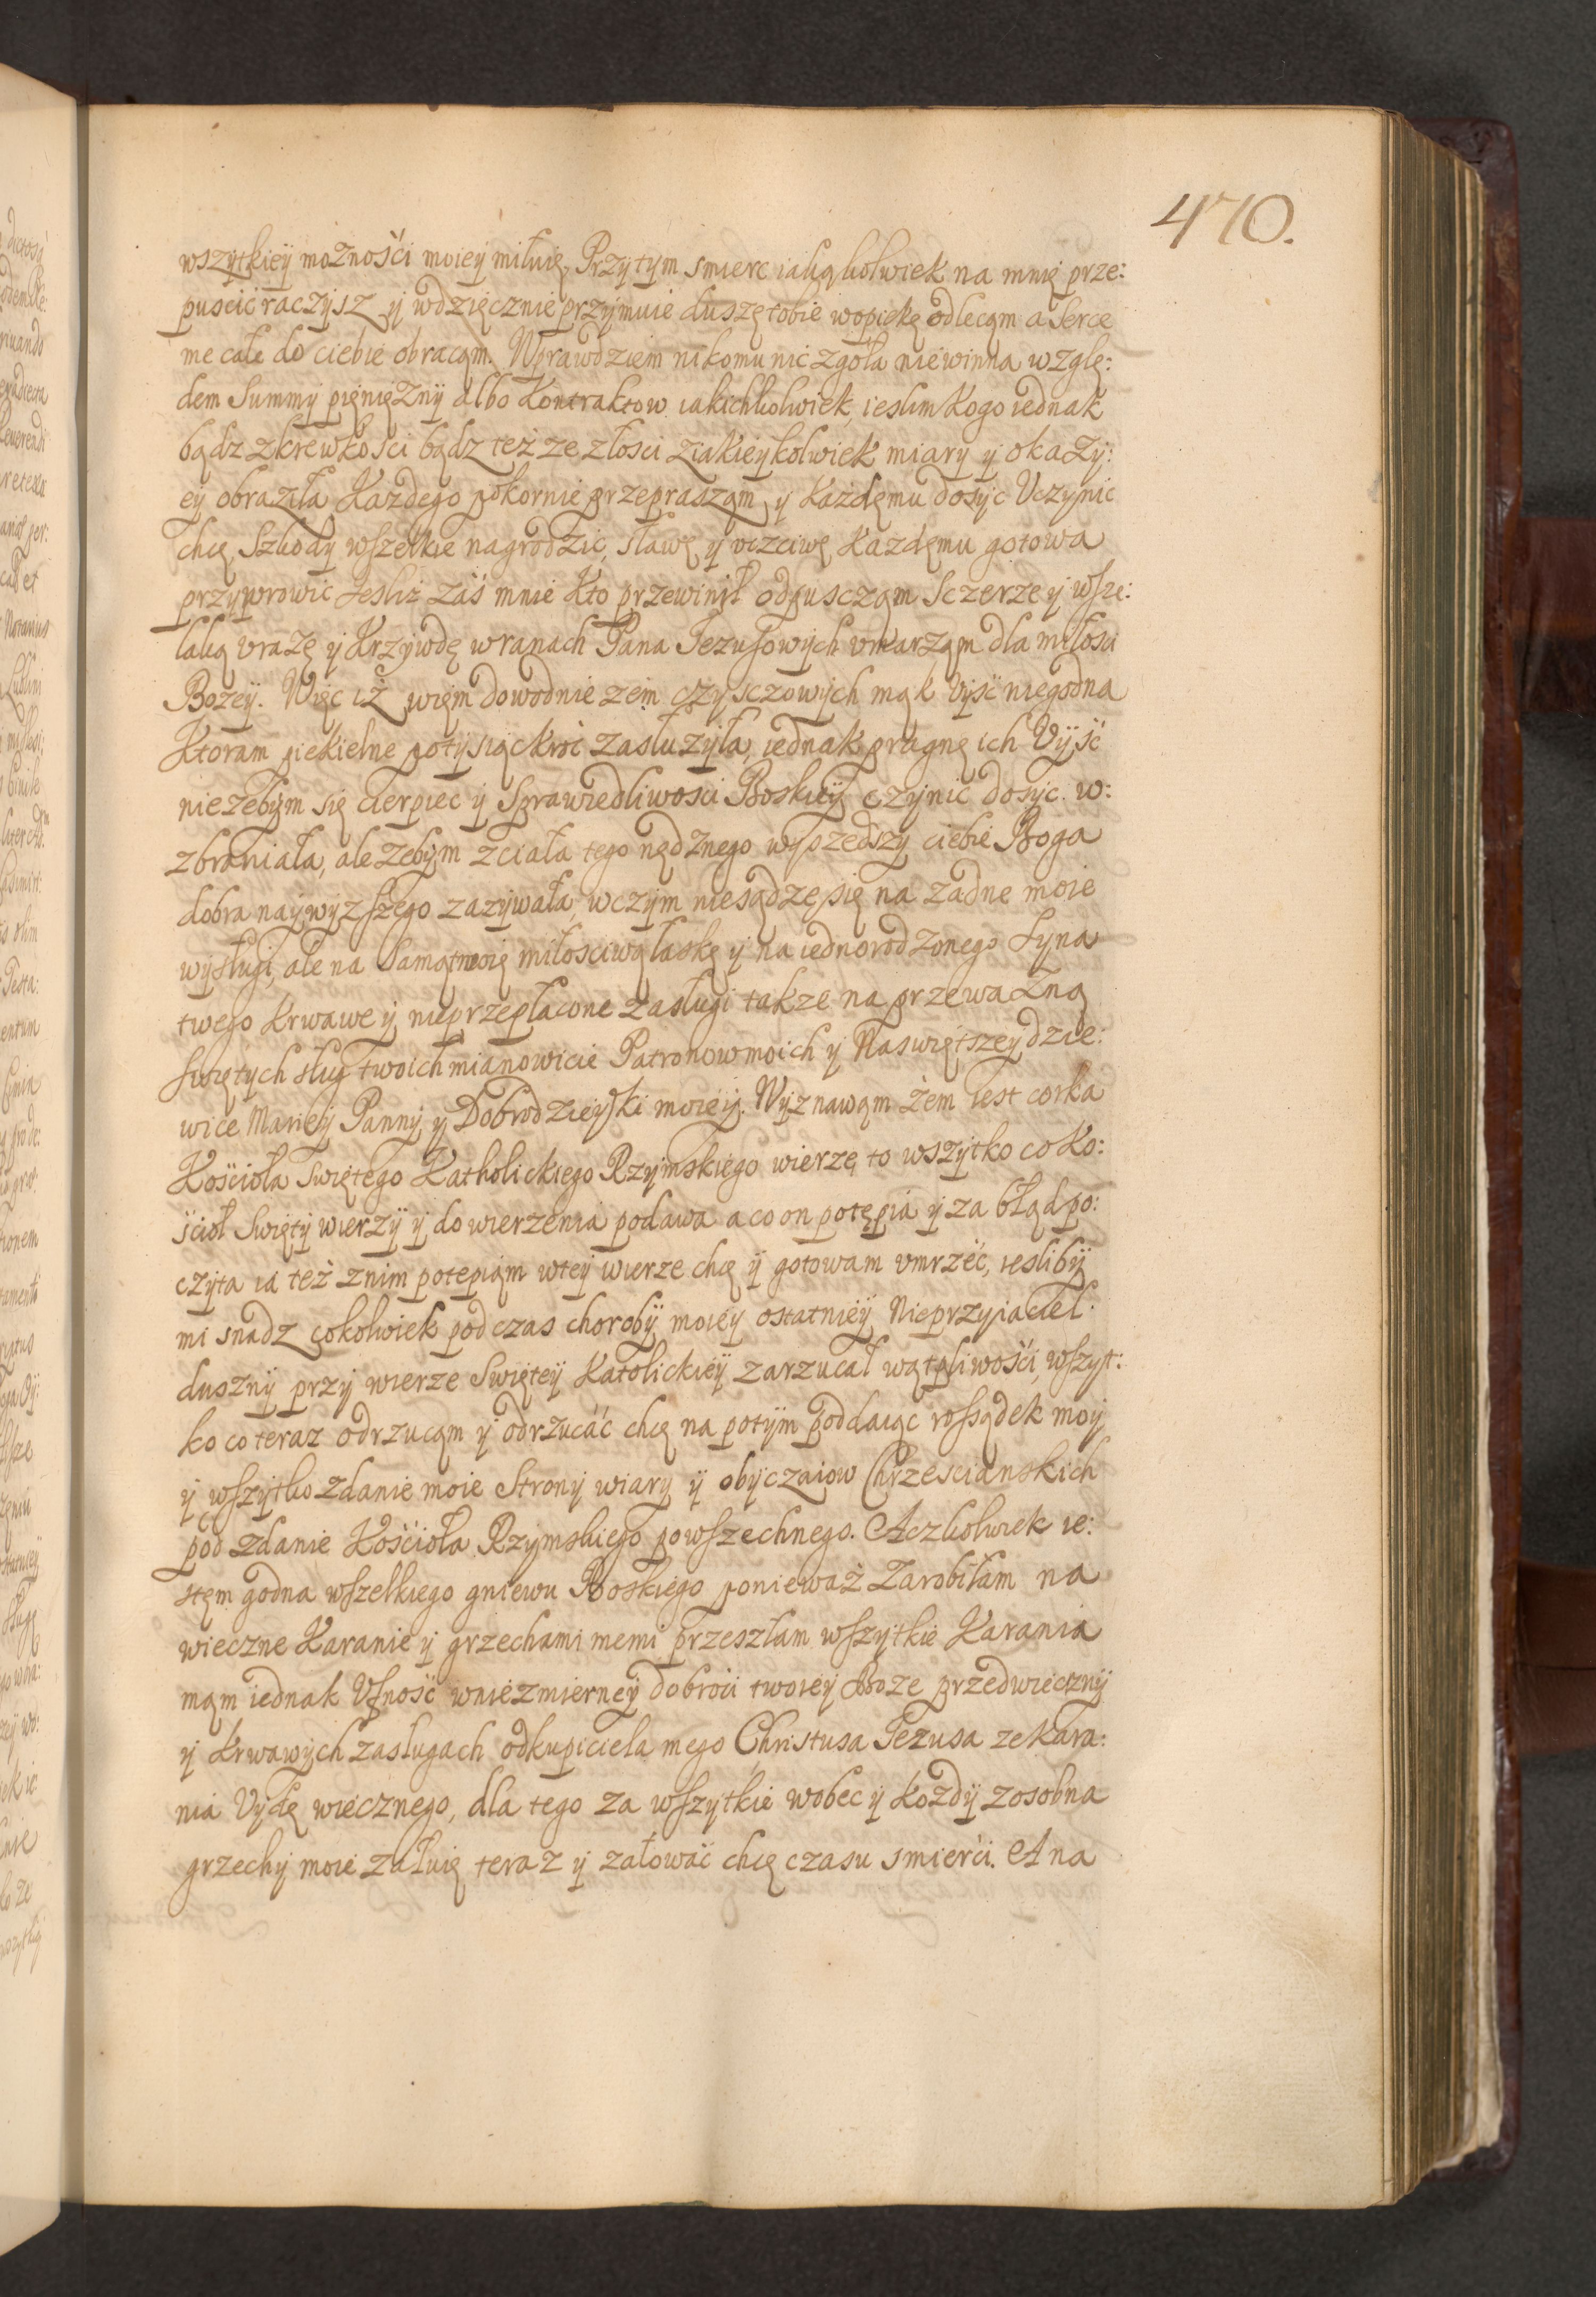 470.
wszytkiey możności moiey miłuię, Przytym smierc iakąkolwiek na mnię prze:
puscić raczysz y wdzięcznie przyimuie duszę tobie wopiekę odlecam a serce
me całe do ciebie obracam. Wprawdziem nikomu nic zgoła niewinna wzglę:
dem Summy pięnięZny albo Kontraktow iakichkolwiek, ieslim Kogo iednak
bądz zkrewkości bądz też ze złosci ziakieykolwiek miary y okaZy:
ey obraziła Każdego pokornie przepraszam y Każdęmu dosyc Uczynic
chcę Szkody wszelkie nagrodzić, sławę y vczciwę Każdęmu gotowa
przywrowić Jesliż zaś mnie Kto przewinił odpusczam Sczerze y wsze:
laką vrazę y Krzywdę wranach Pana Jezusowych vmarzam dla miłosci
Bozey. Więc iż więm dowodnie zem czysczowych mąk Uyść niegodna
Ktoram piekielne potysiąckroć zasłuzyła, iednak pragnę ich Uyść
niezebym się cierpiec y Sprawiedliwosci Boskiey czynić dosyc. w:
zbraniała, ale zebym zciała tego nędznego wyszedszy ciebie Boga
dobra naywyzszego zazywała, wczym niesądze się na zadne moie
wysługi, ale na Samą twoię miłosciwą łaskę y na iednorodzonego Syna
twego Krwawe y nieprzepłacone zasługi takze na przewaZną
swiętych sług twoich mianowicie Patronow moich y Naswiętszey dzie:
wice Mariey Panny y Dobrodzieyski moiey. Wyznawam żem iest corka
Kościoła swiętego Katholickiego Rzymskiego wierzę to wszytko co Ko:
ścioł Swięty wierzy y do wierzenia podawa a co on potępia y za błąd po:
czyta ia też znim potepiam wtey wierze chcę y gotowam vmrzeć, iesliby
mi snadz cokolwiek podczas choroby moiey ostatniey Nieprzyiaciel
duszny przy wierze Swiętey Katolickiey zarzucał wątpliwości, wszyt:
ko co teraz odrzucam y odrzucáć chcę na potym poddaiąc rossądek moy
y wszytko zdanie moie Strony wiary y obyczaiow Chrzescianskich
pod zdanie Kościoła Rzymskiego powszechnego. Aczkolwiek ie:
stęm godna wszelkiego gniewu Boskiego ponieważ Zarobiłam na
wieczne Karanie y grzechami memi przeszłam wszytkie Karania
mąm iednak Ufność wniezmierney dobroci twoiey Boze przedwieczny
y krwawych zasługach odkupiciela mego Christusa Jezusa zekara:
nia Uydę wiecznego, dla tego za wszytkie wobec y kozdy zosobna
grzechy moie załuię teraz y załować chcę czasu smierći. A na